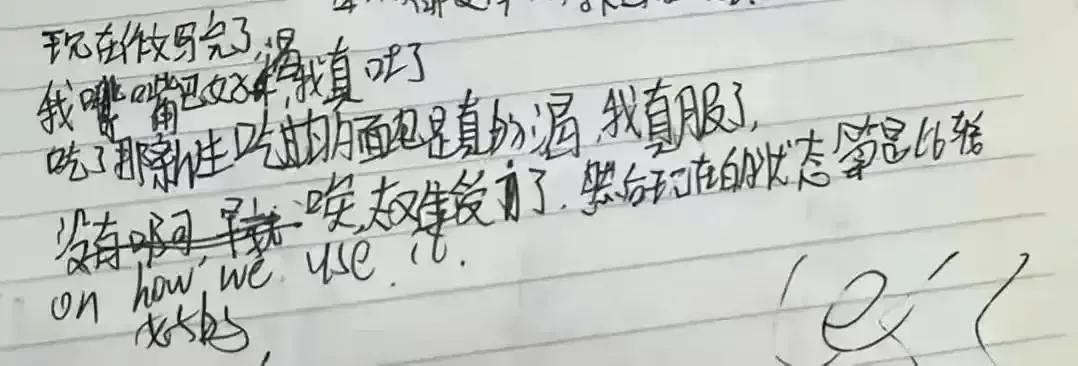 现在作文写完了,
我嘴巴好渴,我真吐了
吃了那新生吃的面包是真的渴,我真服了,
没有 唉,太难受了.然后现在的状态算是比较
on how we use it.